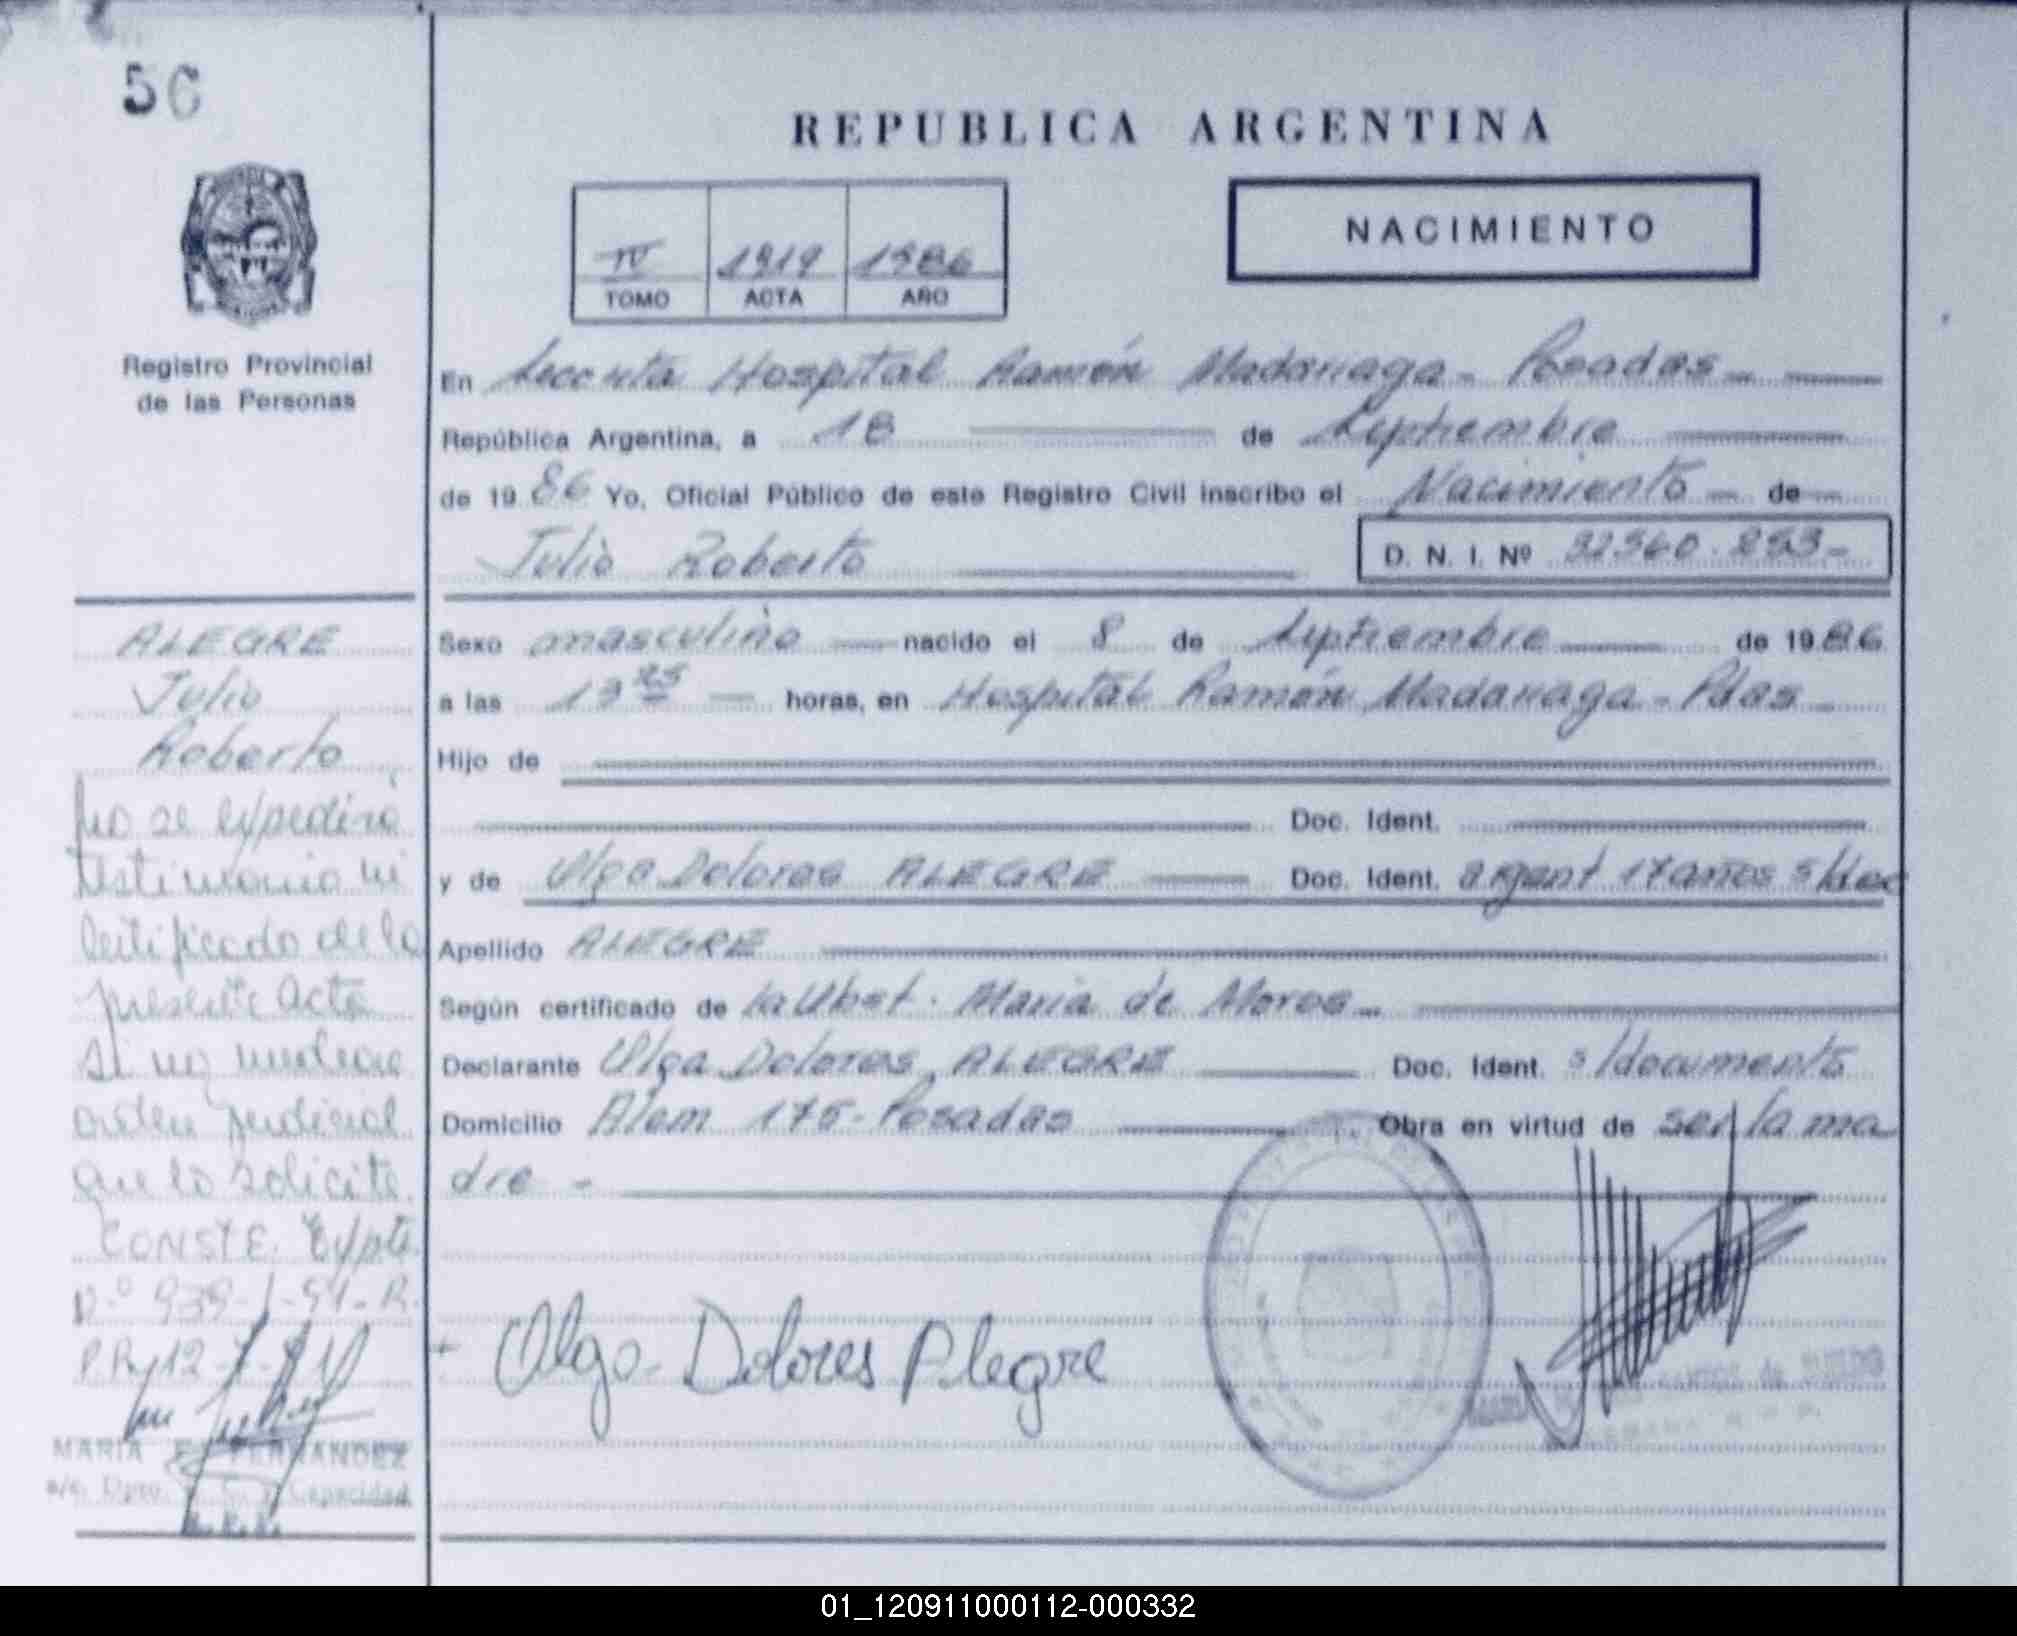 56
REPUBLICA ARGENTINA
NACIMIENTO
IV 1919 1986
TOMO ACTA AÑO
Registro Provincial
de las Personas
En Hospital Ramón Madariaga - Posadas -
República Argentina, a 18 de Septiembre
de 1986 Yo, Oficial Público de este Registro Civil inscribo el Nacimiento - de
Julio Roberto
D. N. I. Nº
ALEGRE
Julio
Roberto
No se expedirá
testimonio ni
certificado de la
presente acta
si no mediare
orden judicial
que lo solicite.
CONSTE. Expte.
Nº 939-
MARIA E. FERNANDEZ
a/c. Dpto. Capacidad
Sexo masculino nacido el 8 de Septiembre de 1986
a las horas, en Hospital Ramón Madariaga - Pdas
Hijo de
Doc. Ident.
y de Olga Dolores ALEGRE Doc. Ident. argent 17 años s/doc
Apellido ALEGRE
Según certificado de la Obst. Maria de
Declarante Olga Dolores ALEGRE Doc. Ident. s/documento
Domicilio Alem 175 - Posadas Obra en virtud de ser la ma
dre -
Olga Dolores Alegre
01_120911000112-000332